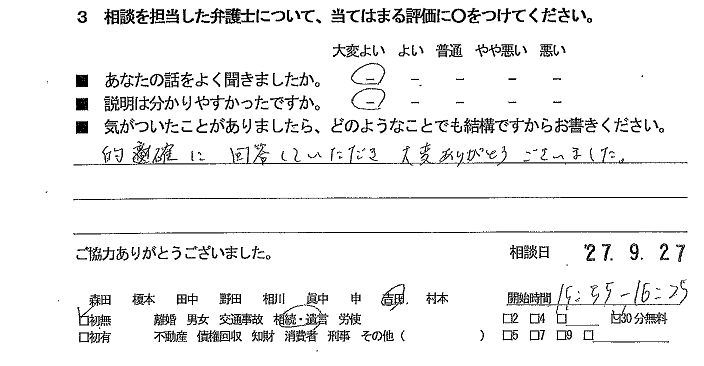 3 相談を担当した弁護士について、当てはまる評価に○をつけてください。
大変よい よい 普通 やや悪い 悪い
■ あなたの話をよく聞きましたか。 － － － － －
■ 説明は分かりやすかったですか。 － － － － －
■ 気がついたことがありましたら、どのようなことでも結構ですからお書きください。
的確に 回答していただき 大変ありがとうございました。
ご協力ありがとうございました。 相談日 '27. 9. 27
森田 榎本 田中 野田 相川 眞中 申 吉田 村本 開始時間 15:55-16:25
□初無 離婚 男女 交通事故 相続・遺言 労使 □2 □4 □ ☑30分無料
□初有 不動産 債権回収 知財 消費者 刑事 その他( ) □5 □7 □9 □